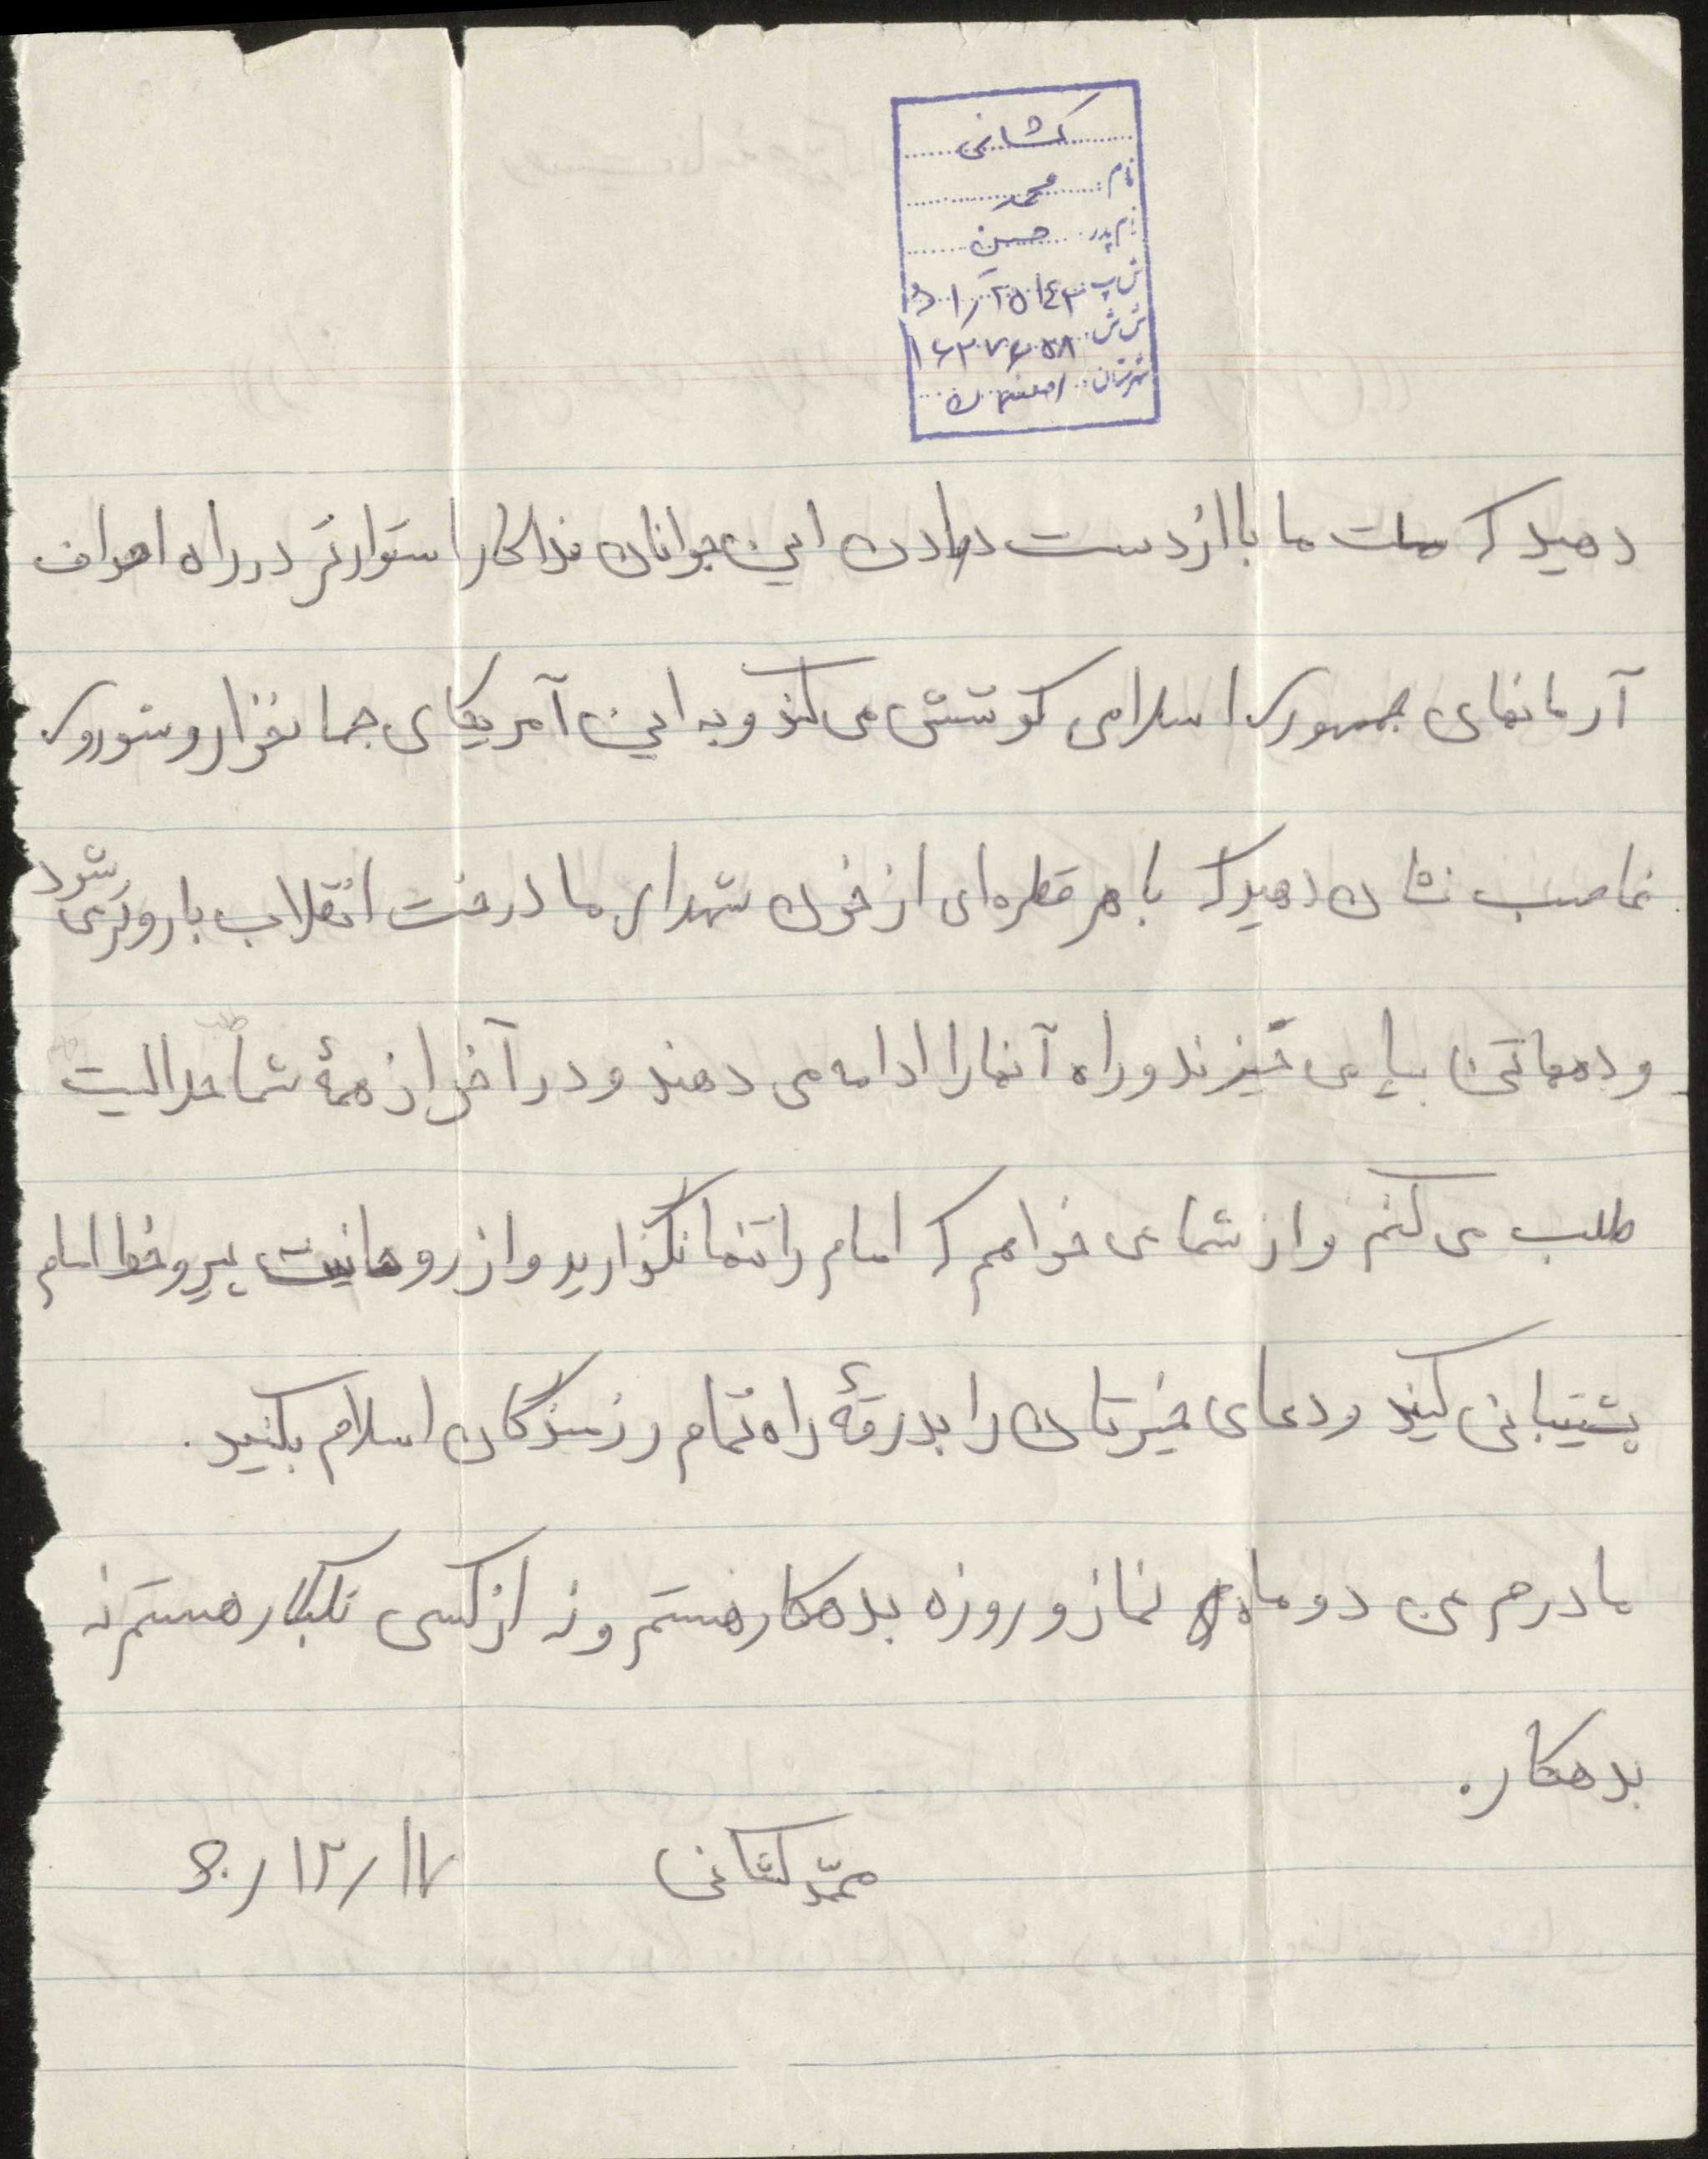 کشانی
نام: محمد
نام پدر: حسین
ش پ
ش ش: ۱۶۲۷۶۵۸
شهرستان: اصفهان
دهید که ملت ما با از دست دادن این جوانان فداکار استوارتر در راه اهداف
آرمانهای جمهوری اسلامی کوشش می کند و به این آمریکای جهانخوار و شوروی
غاصب نشان دهید که با هر قطره‌ای از خون شهدای ما درخت انقلاب بارورتر می شود
و دهها تن بپا می خیزند و راه آنها را ادامه می دهند و در آخر از همهٔ شما حلالیت
طلب می کنم و از شما می خواهم که امام را تنها نگذارید و از روحانیت پیرو خط امام
پشتیبانی کنید و دعای خیرتان را بدرقهٔ راه تمام رزمندگان اسلام بکنید.
مادرم من دو ماه نماز و روزه بدهکار هستم و نه از کسی طلبکار هستم نه
بدهکار.
محمّد کشانی ۶۰/۱۲/۱۷